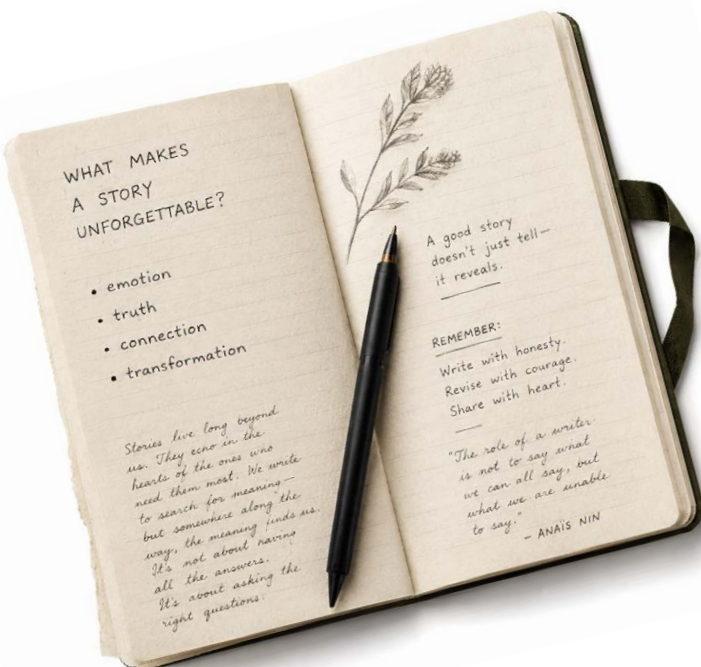 WHAT MAKES
A STORY
UNFORGETTABLE?
• emotion
• truth
• connection
• transformation
Stories live long beyond
us. They echo in the
hearts of the ones who
need them most. We write
to search for meaning—
but somewhere along the
way, the meaning finds us.
It's not about having
all the answers.
It's about asking the
right questions.
A good story
doesn't just tell—
it reveals.
REMEMBER:
Write with honesty.
Revise with courage.
Share with heart.
"The role of a writer
is not to say what
we can all say, but
what we are unable
to say."
– ANAÏS NIN